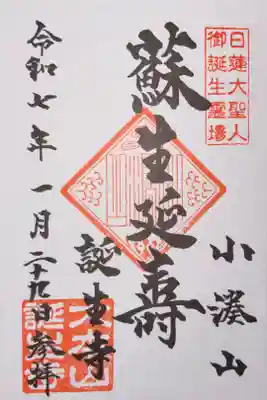 日蓮大聖人
御誕生霊場
小湊山
蘇生延寿
誕生寺
令和七年一月二十九日参拝
大本山
誕生寺